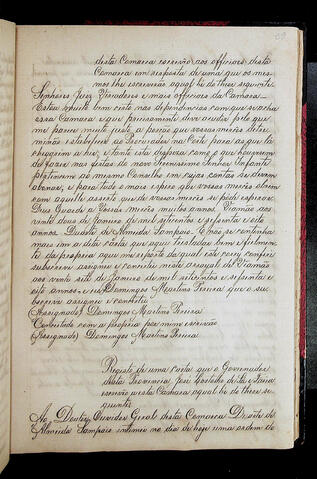 desta Comarca escrivão aos officiaes desta
Comarca em resposta de uma que os mes-
mos lhe escreverão a qual é de theor seguinte
Senhores Juiz Vereadores e mais officiaes da Camara
Estou muito em certo nas dependencias com que se acha
essa Camara e que precisamente deve acudir pelo que
me parece muito justo a posição que vossas mercês deter-
minão estabelecer ao Procurador na Corte para as que lá
chegarem a ser, e ante esta
as festas do novo Serenissimo Senhor Infante
ao mesmo Conselho em cujas contas se devem
abonar, e para tudo o mais espero que vossas mercês obrem
com aquelle acerto que de vossas mercês se póde esperar.
Deus Guarde a Vossas mercês muitos annos. Viamão aos
vinte dous de Janeiro de mil setecentos e sessenta e oito
annos. Duarte de Almeida Sampaio. E não se continha
mais em a dita carta que aqui trasladei bem e fielmente
da propria a qual me reporto da qual este conferi
subscrevi assignei e concertei neste arraial de Viamão
aos vinte sete de Janeiro de mil setecentos e sessenta e
oito annos e eu Domingos Martins Pereira que o su-
bscrevi assignei e concertei
(Assignado) Domingos Martins Pereira
Concertada com a propria por mim escrivão
(Assignado) Domingos Martins Pereira
Registo de uma carta que o Governador
desta Provincia José Custodio de Sá e Faria
escreveo a esta Camara a qual é de theor se-
guinte
Ao Doutor Ouvidor Geral desta Comarca Duarte de
Almeida Sampaio intimei no dia de hoje uma ordem do